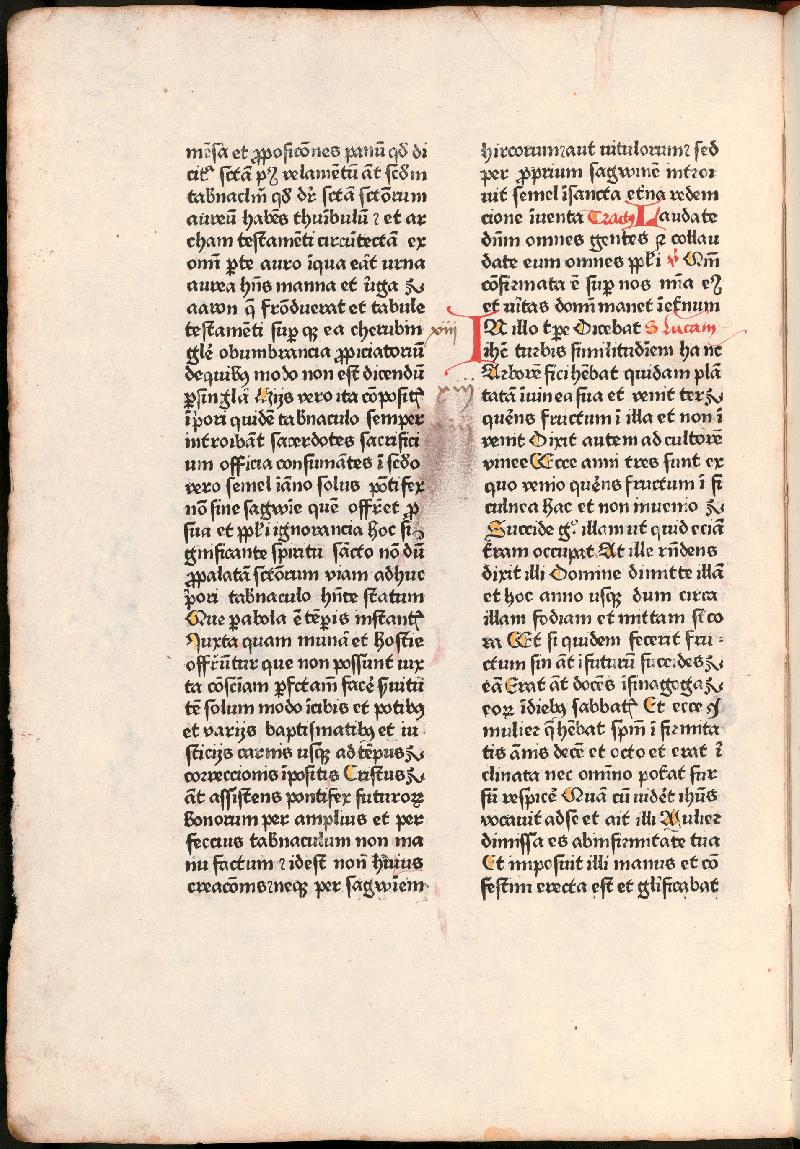 mēsa et ꝓposicōnes panū qđ di
citᷣ sctā pꝰ velamētū āt scđm
tabnaclm̄ qđ dr̄ sctā sctōrum
aureū habēs thuribulū ⁊ et ar
cham testamēti circūtectā ex
omī ꝑte auro īqua eāt urna
aurea hn̄s manna et ūga
aaron q̄ frōduerat et tabule
testamēti suꝑ qꝫ ea cherubin
glē obumbrancia ꝓpiciatoriū
dequibꝰ modo non est dicendū
ꝑsingĺa Hijs vero ita cōpositꝭ
īpori quidē tabnaculo semper
introibāt sacerdotes sacrifici
um officia consumātes ī scđo
vero semel īāno solus pōtifex
nō sine sagwīe quē offr̄et ꝓ
sua et ppl̓i ignorancia hoc si
gnificante spiritu sācto nō dū
ꝓpalatā sctōrum viam adhuc
p̄ori tabnaculo hn̄te statum
Que pabola ē tēpis instantꝭ
Juxta quam munā et hostie
offrūtur que non possunt iux
ta cōsciam ꝑfctam̄ facē ẜuitū
tē solum modo īcibis et potibꝰ
et varijs baptismatibꝰ et iu
sticijs carnis usqꝫ ad tēpus
correccionis īpositis Cristus
āt assistens pontifex futuroꝝ
bonorum per amplius et per
fectius tabnaculum non ma
nu factum ⁊ idest non huius
creacōnis ⁊ neqꝫ per sagwīem
hircorum ⁊ aut uitulorum ⁊ sed
per ꝓprium sagwinē introi
uit semel īsancta et̄na redem
cione īuenta Tractꝰ Laudate
dn̄m omnes gentes ⁊ collau
date eum omnes ppl̓i v̄ Qm̄
cōfirmata ē suꝑ nos mīa eꝰ
et ūitas domī manet īet̄num
xiii IN illo tꝑe Dicebat S Lucam
ihē turbis similitudīem hanc
Arborē fici hēbat quidam plā
xiij tatā īuinea sua et venit
querēs fructum ī illa et non ī
venit Dixit autem ad cultorē
vinee Ecce anni tres sunt ex
quo venio querēs fructum ī fi
culnea hac et non inuenio
Succide gᵒ illam ut quid eciā
t̄ram occupat At ille rn̄dens
dixit illi Domine dimitte illā
et hoc anno usqꝫ dum circa
illam fodiam et mittam stco
ra Et si quidem fecerit fru-
ctum sin āt īfuturū succides
eā Erat āt docēs īsinagoga
eoꝝ īdiebꝰ sabbatꝭ Et ecce
mulier q̄ hēbat spm̄ ī firmita
tis ānis decē et octo et erat ī
clinata nec omīno pot̄at sur
sū respicē Quā cū uidēt ihūs
vocauit adse et ait illi Mulier
dimissa es abinfirmitate tua
Et imposuit illi manus et cō
festim erecta est et glīficabat